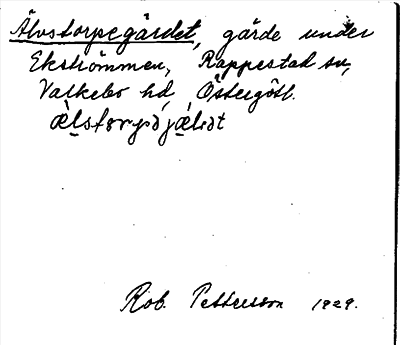 Älvstorpegärdet, gärde under
Ekströmmen, Rappestad sn,
Valkebo hd, Östergötl.
Rob. Pettersson 1929.